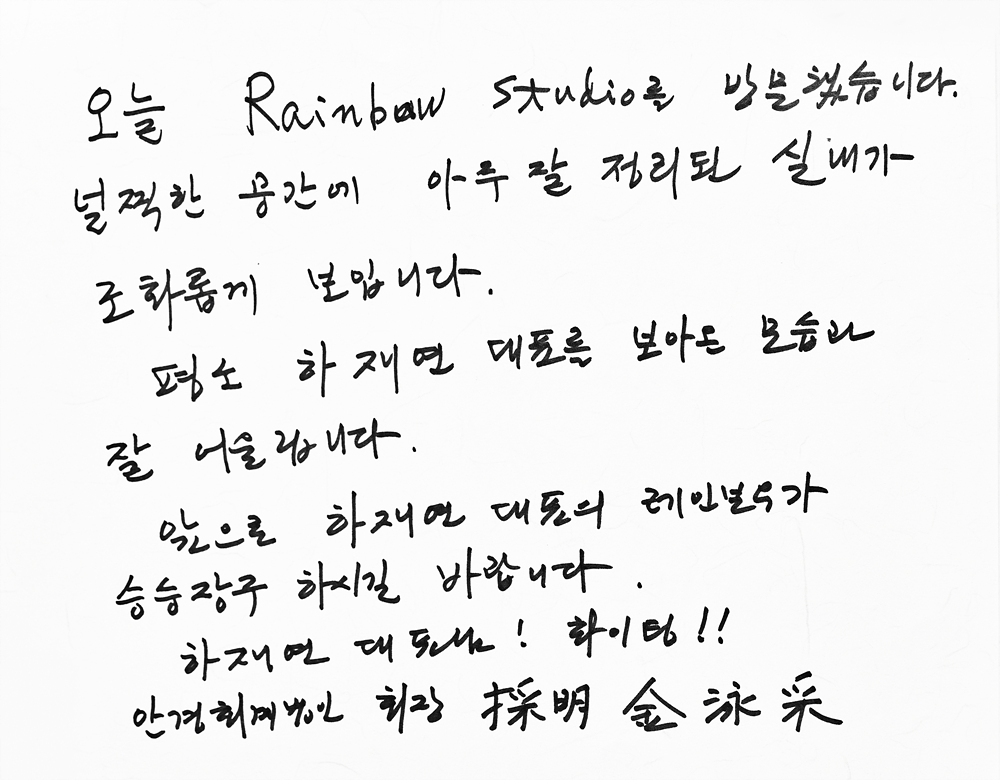 오늘 Rainbow studio를 방문했습니다.
널찍한 공간에 아주 잘 정리된 실내가
조화롭게 보입니다.
평소 하재연 대표를 보아온 모습과
잘 어울립니다.
앞으로 하재연 대표의 레인보우가
승승장구 하시길 바랍니다.
하재연 대표님! 화이팅!!
안경회계법인 회장 採明 金泳采